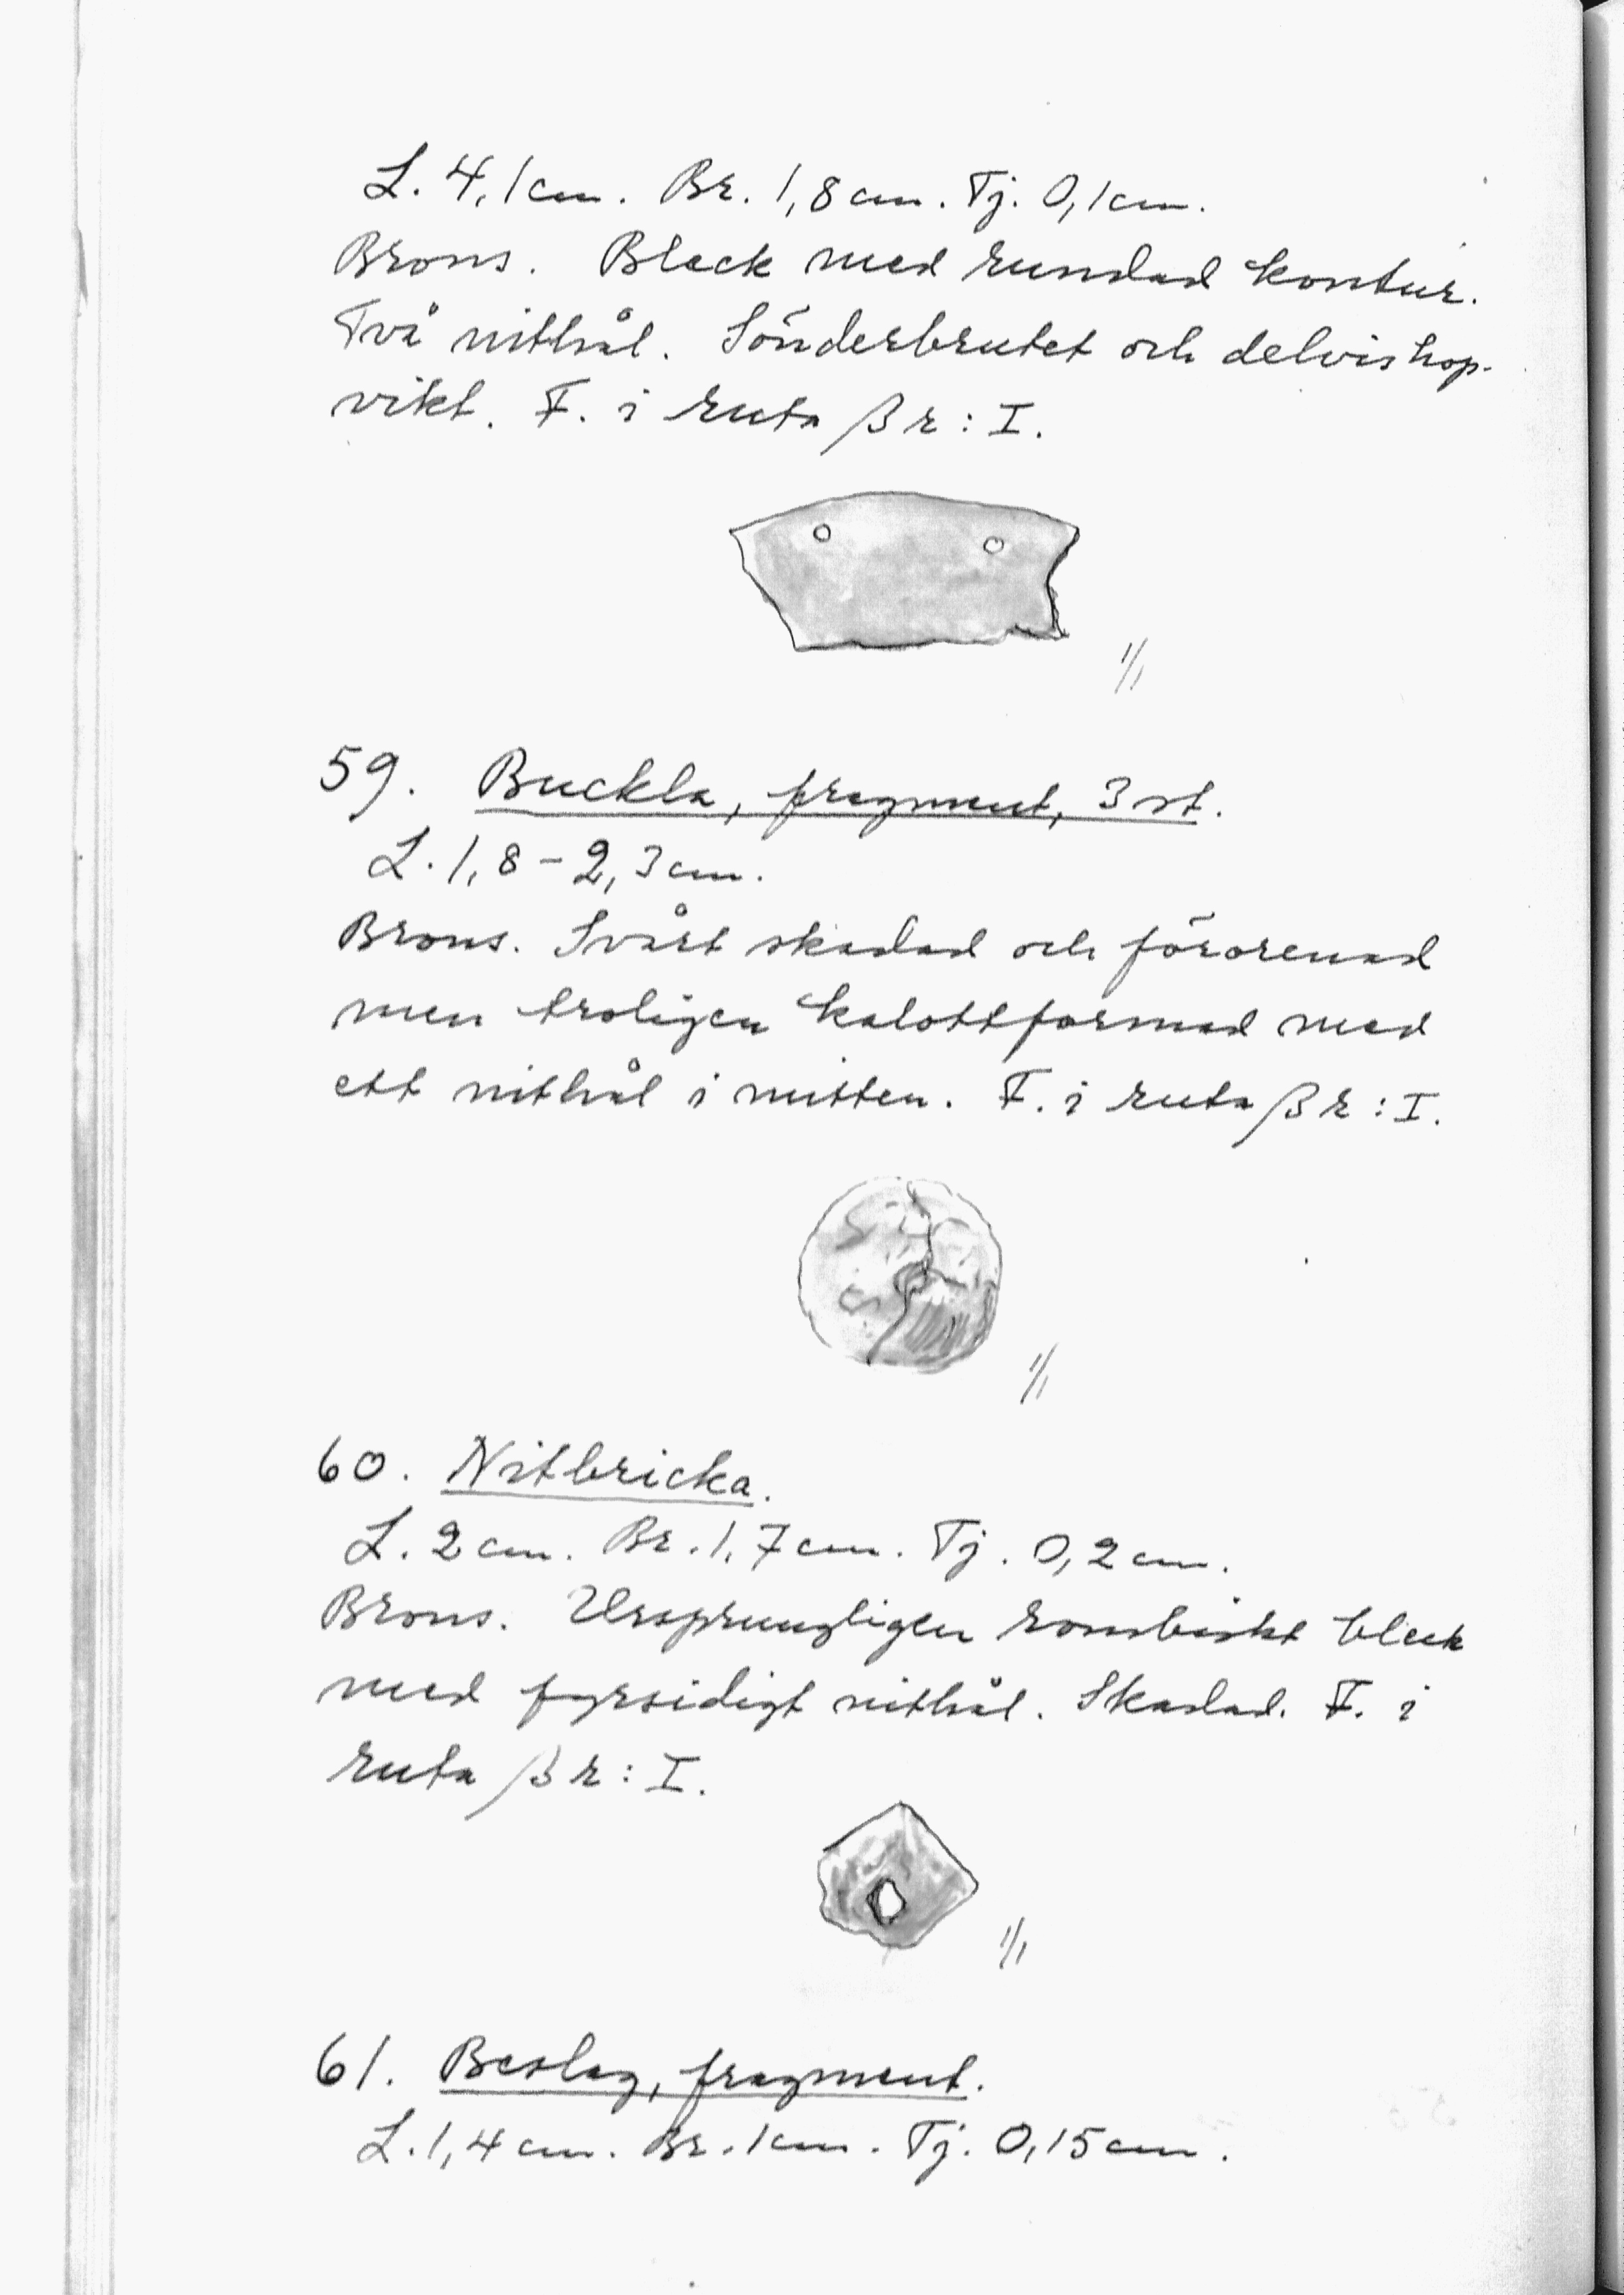 L. 4,1 cm. Br. 1,8 cm. Tj. 0,1 cm.
Brons. Bleck med rundad kontur.
Två nithål. Sönderbrutet och delvis hop-
vikt. F. i ruta βr: I.
1/1
59. Buckla, fragment, 3 st.
L. 1,8 - 2,3 cm.
Brons. Svårt skadad och förorenad
men troligen kalottformad med
ett nithål i mitten. F. i ruta βr: I.
1/1
60. Nitbricka.
L. 2 cm. Br. 1,7 cm. Tj. 0,2 cm.
Brons. Ursprungligen rombiskt bleck
med fyrsidigt nithål. Skadad. F. i
ruta βr: I.
1/1
61. Beslag, fragment.
L. 1,4 cm. Br. 1 cm. Tj. 0,15 cm.